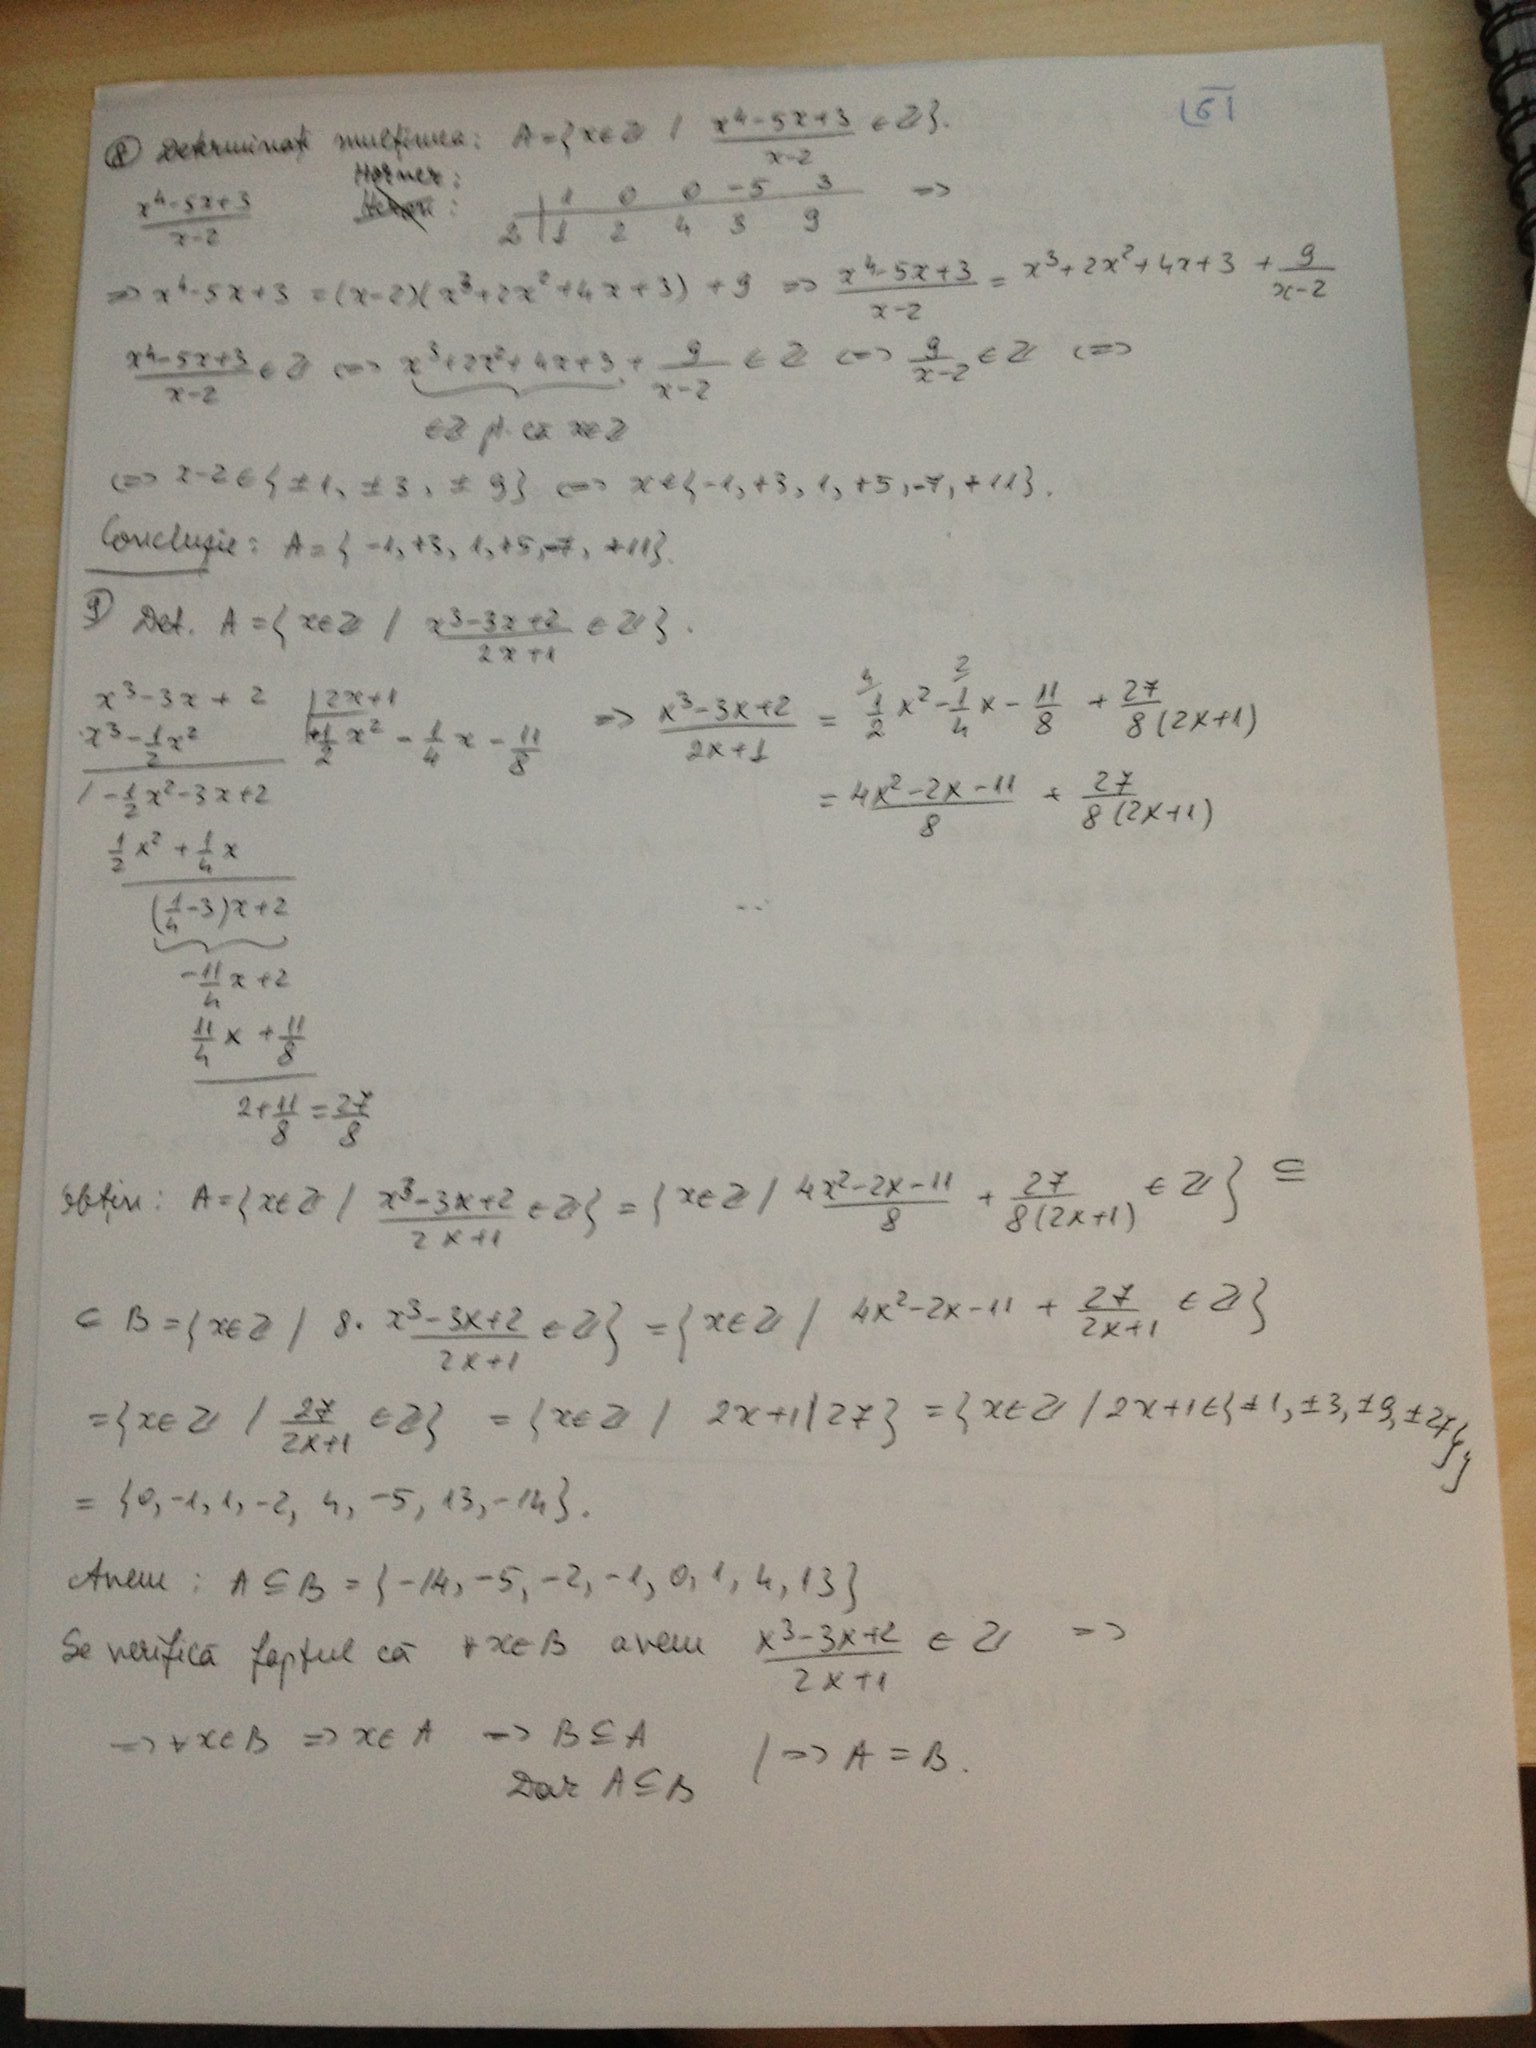 6
⑧ Determinați mulțimea: A={x∈ℤ / (x⁴-5x+3)/(x-2) ∈ℤ}.
(x⁴-5x+3)/(x-2) Horner: 1 0 0 -5 3 =>
2 | 1 2 4 3 9
=> x⁴-5x+3 = (x-2)(x³+2x²+4x+3) + 9 => (x⁴-5x+3)/(x-2) = x³+2x²+4x+3 + 9/(x-2)
(x⁴-5x+3)/(x-2) ∈ ℤ <=> x³+2x²+4x+3 + 9/(x-2) ∈ ℤ <=> 9/(x-2) ∈ ℤ <=>
∈ℤ pt. că x∈ℤ
<=> x-2∈{±1, ±3, ±9} <=> x∈{-1,+3, 1, +5,-7, +11}.
Concluzie: A={ -1,+3, 1,+5,-7, +11}.
⑨ Det. A={ x∈ℤ / (x³-3x+2)/(2x+1) ∈ ℤ}.
x³-3x + 2 | 2x+1
x³-1/2x² 1/2x² - 1/4x - 11/8 => (x³-3x+2)/(2x+1) = 1/2x² - 1/4x - 11/8 + 27/(8(2x+1))
/ -1/2x²-3x+2 = (4x²-2x-11)/8 + 27/(8(2x+1))
1/2x² + 1/4x
(1/4-3)x+2
-11/4x+2
11/4x + 11/8
2+11/8 = 27/8
Obțin: A={x∈ℤ / (x³-3x+2)/(2x+1) ∈ℤ} = {x∈ℤ / (4x²-2x-11)/8 + 27/(8(2x+1)) ∈ ℤ} ⊆
⊆ B={x∈ℤ / 8· (x³-3x+2)/(2x+1) ∈ ℤ} = {x∈ℤ / 4x²-2x-11 + 27/(2x+1) ∈ ℤ}
={x∈ℤ / 27/(2x+1) ∈ℤ} = {x∈ℤ / 2x+1|27} = {x∈ℤ / 2x+1∈{±1, ±3, ±9, ±27}}
= {0, -1, 1, -2, 4, -5, 13, -14}.
Avem: A⊆B = {-14, -5, -2, -1, 0, 1, 4, 13}
Se verifică faptul că ∀x∈B avem (x³-3x+2)/(2x+1) ∈ ℤ =>
=> ∀x∈B => x∈A => B⊆A
Dar A⊆B | => A = B.